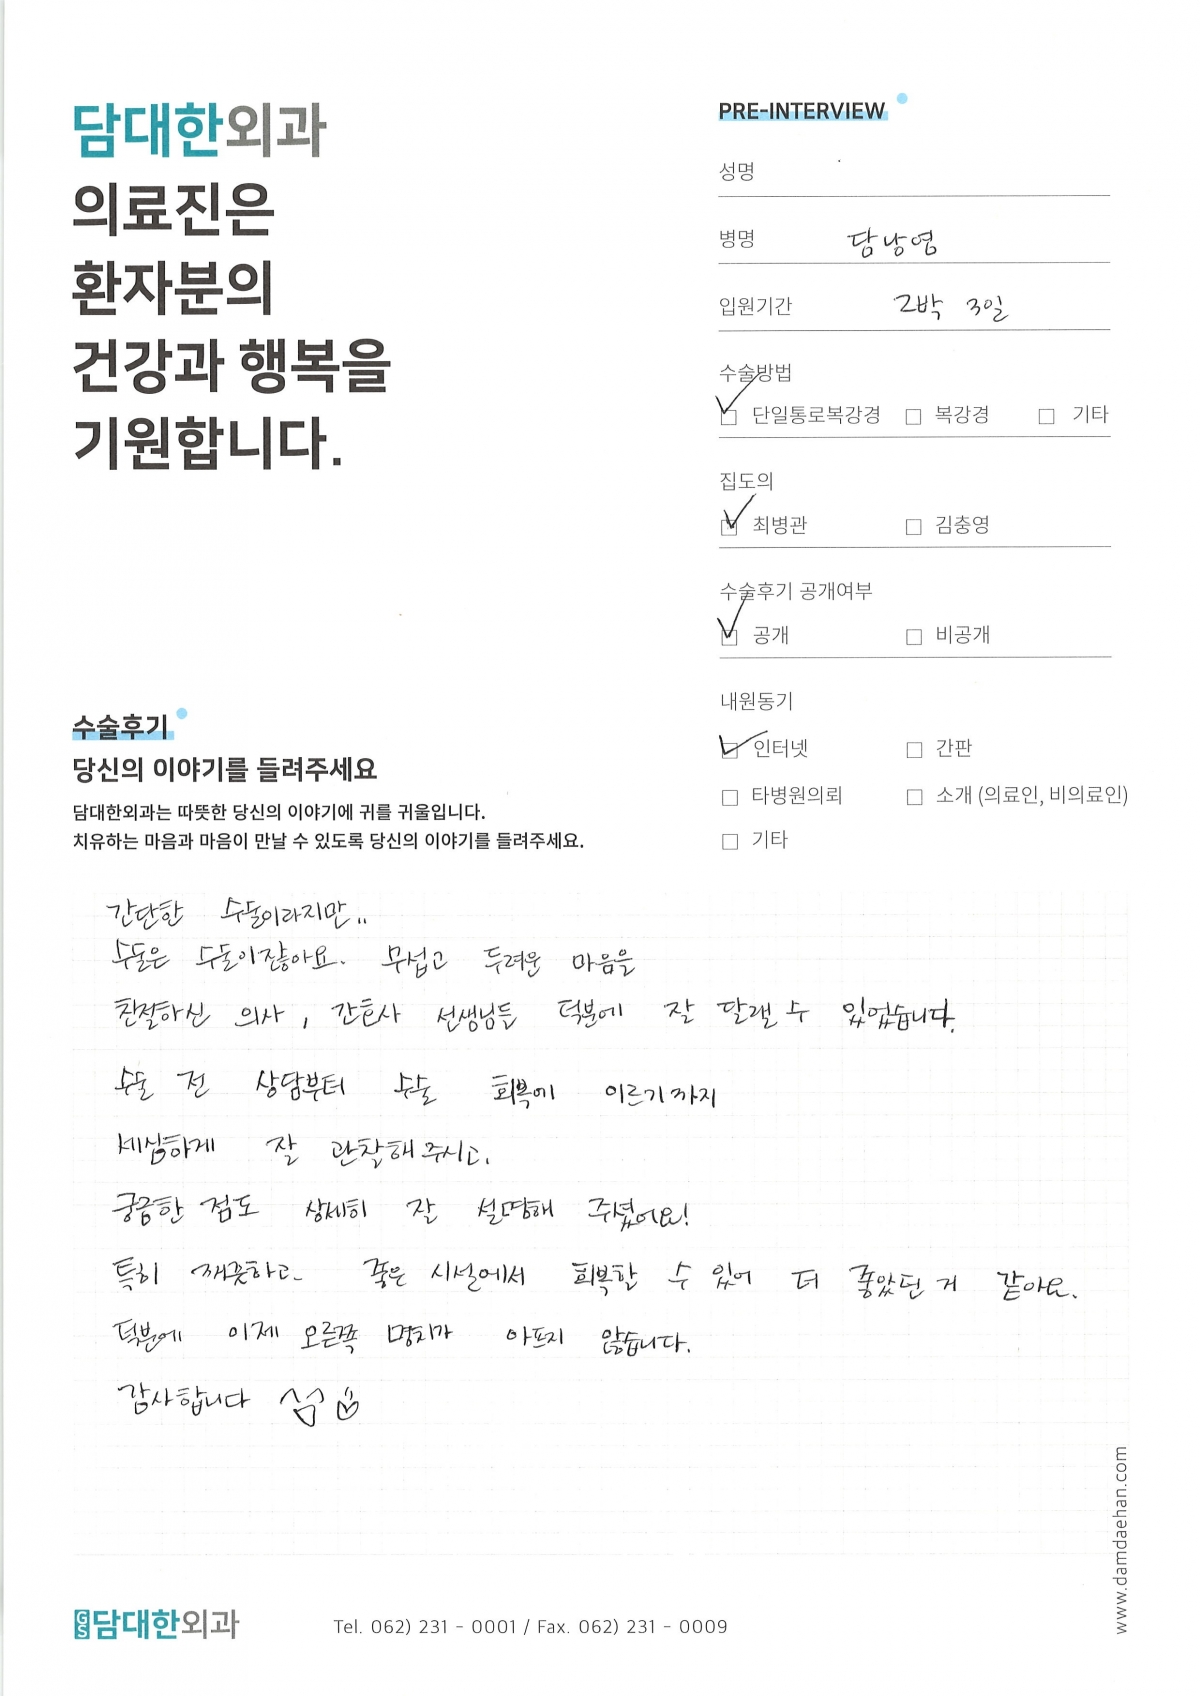 담대한외과
의료진은
환자분의
건강과 행복을
기원합니다.
PRE-INTERVIEW
성명
병명 담낭염
입원기간 2박 3일
수술방법
단일통로복강경 복강경 기타
집도의
최병관 김충영
수술후기 공개여부
공개 비공개
내원동기
인터넷 간판
타병원의뢰 소개 (의료인, 비의료인)
기타
수술후기
당신의 이야기를 들려주세요
담대한외과는 따뜻한 당신의 이야기에 귀를 귀울입니다.
치유하는 마음과 마음이 만날 수 있도록 당신의 이야기를 들려주세요.
간단한 수술이라지만..
수술은 수술이잖아요. 무섭고 두려운 마음을
친절하신 의사, 간호사 선생님들 덕분에 잘 달랠 수 있었습니다.
수술 전 상담부터 수술 회복에 이르기까지
세심하게 잘 관찰해주시고,
궁금한 점도 상세히 잘 설명해 주셨어요!
특히 깨끗하고 좋은 시설에서 회복할 수 있어 더 좋았던 거 같아요.
덕분에 이제 오른쪽 명치가 아프지 않습니다.
감사합니다
GS 담대한외과
Tel. 062) 231 - 0001 / Fax. 062) 231 - 0009
www.damdaehan.com